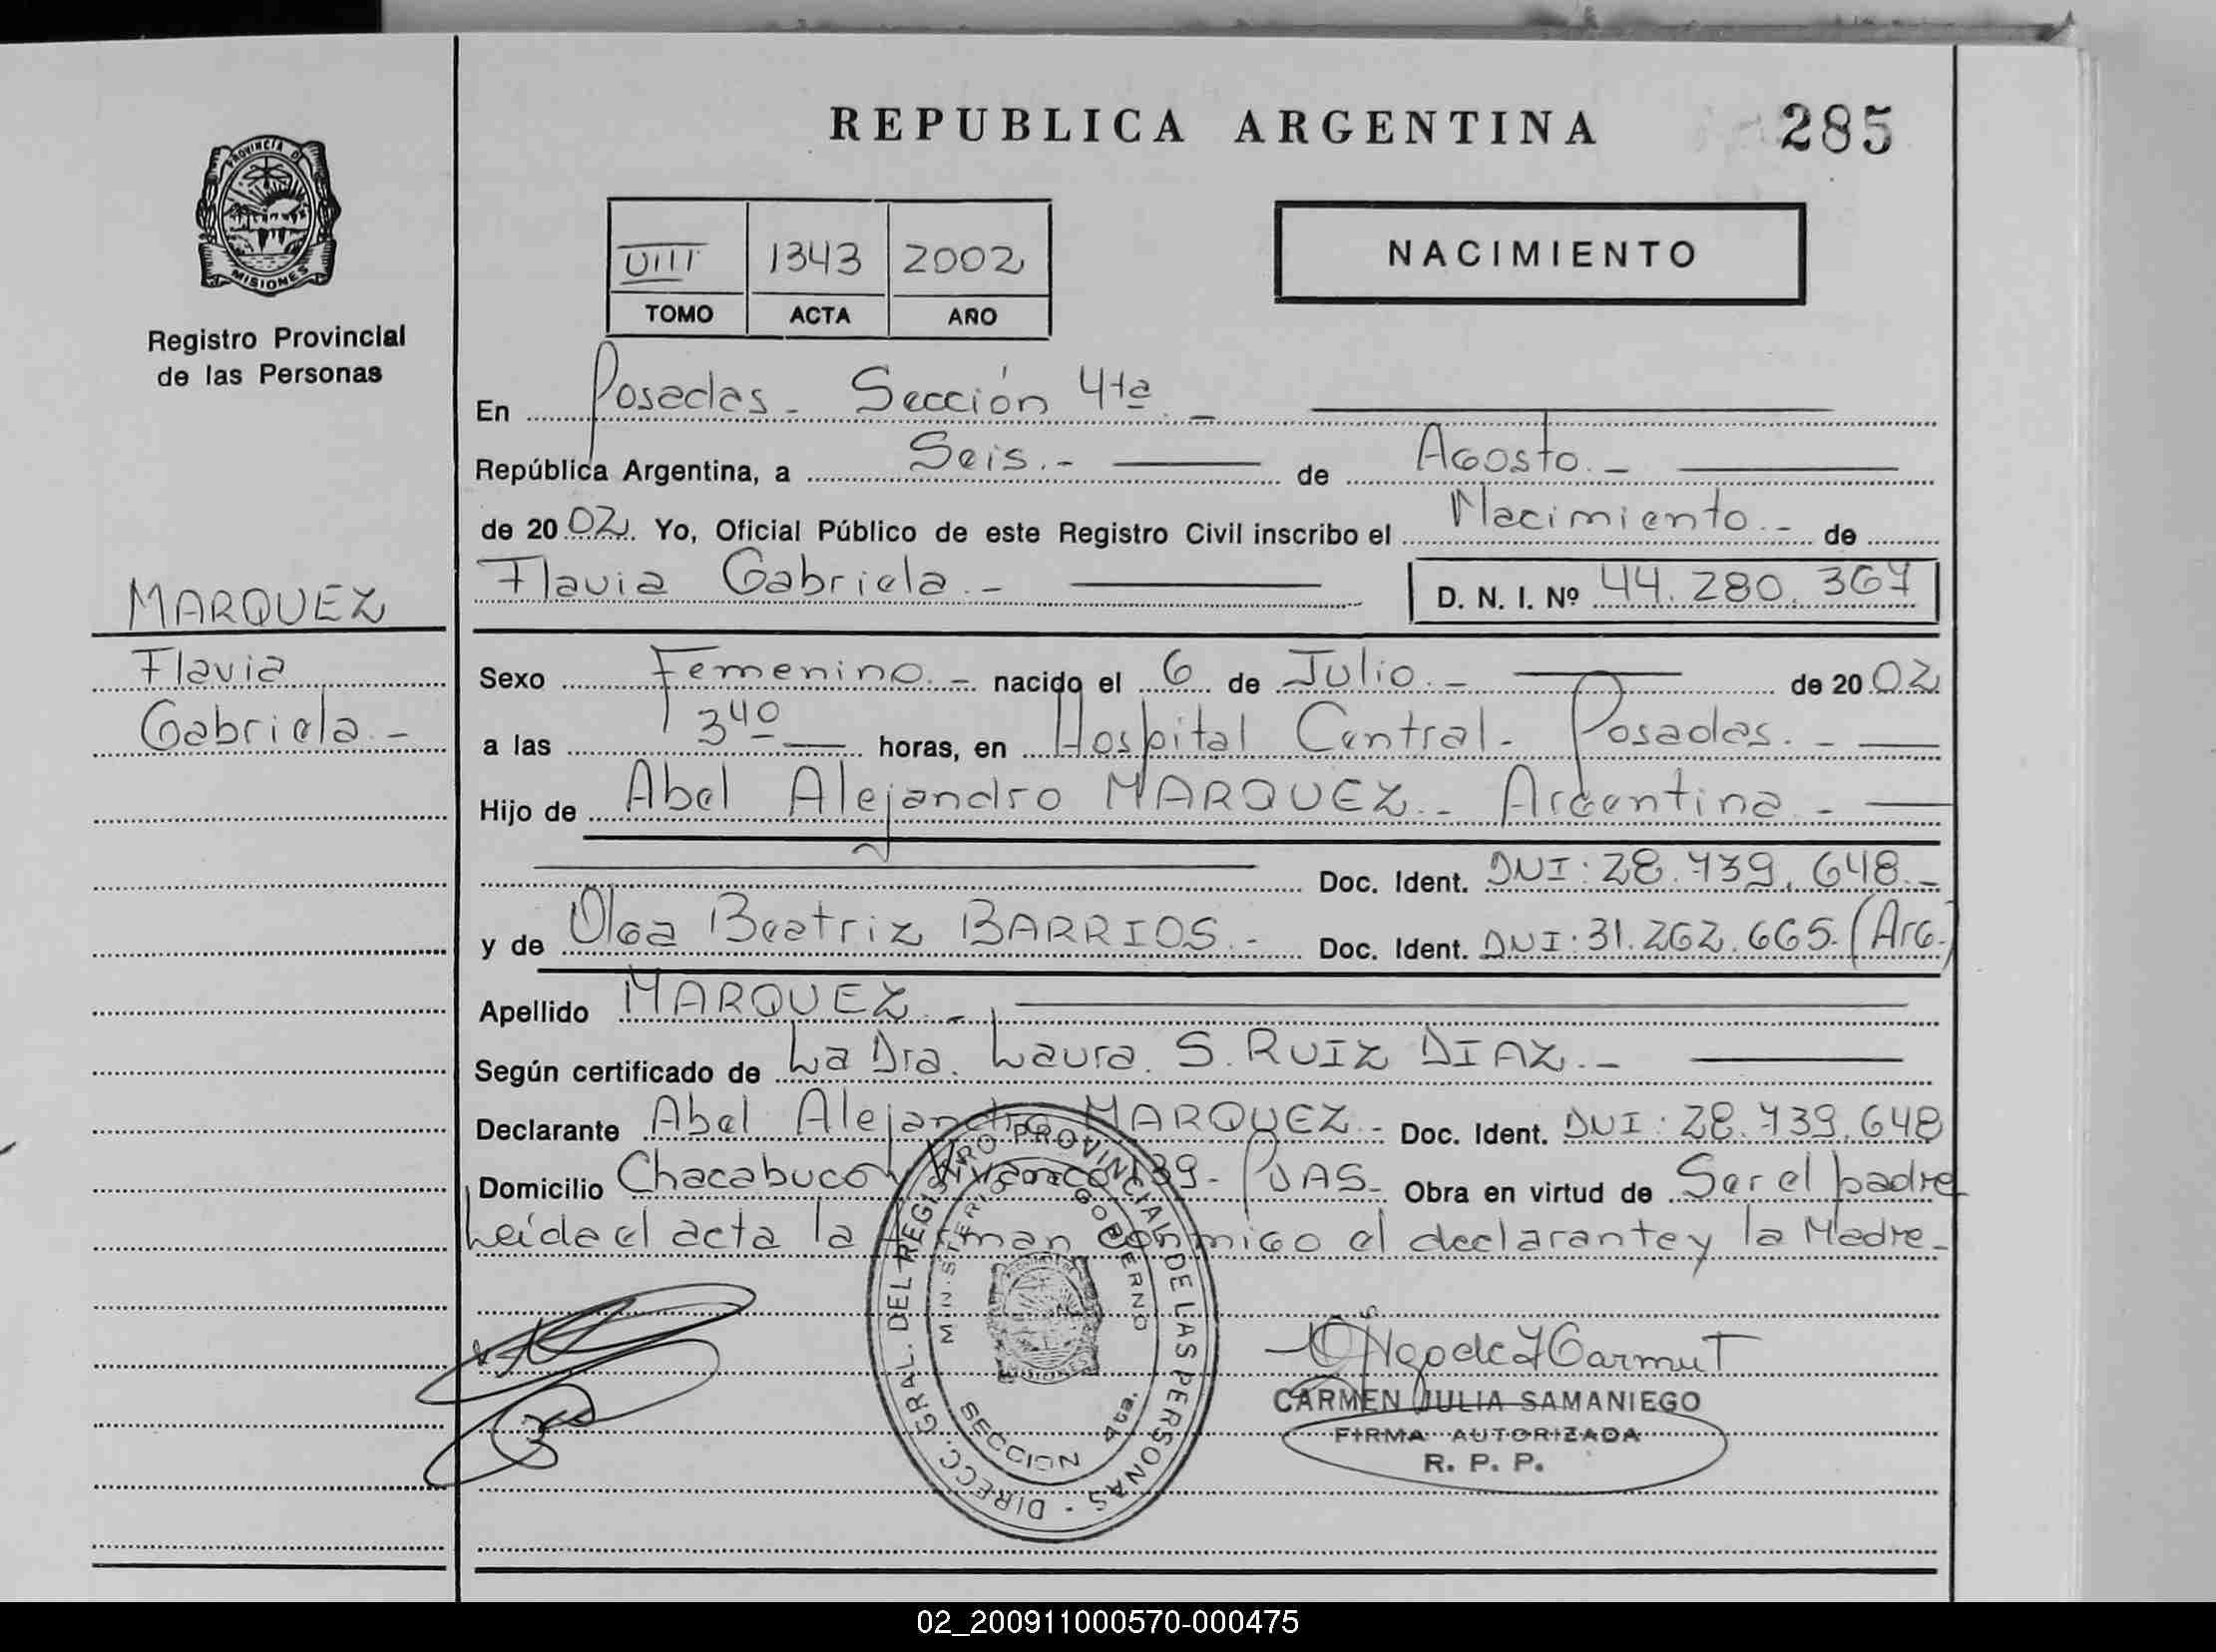 REPUBLICA ARGENTINA 285
PROVINCIA D MISIONES
Registro Provincial
de las Personas
VIII 1343 2002
TOMO ACTA AÑO
NACIMIENTO
En Posadas - Sección 4ta. -
República Argentina, a Seis. - de Agosto. -
de 2002. Yo, Oficial Público de este Registro Civil inscribo el Nacimiento. - de
Flavia Gabriela. - D. N. I. Nº 44.280.367
MARQUEZ
Flavia
Gabriela. -
Sexo Femenino. - nacido el 6 de Julio. - de 2002
a las 3 40 horas, en Hospital Central - Posadas. -
Hijo de Abel Alejandro MARQUEZ. - Argentina. -
Doc. Ident. DNI: 28.739.648. -
y de Olga Beatriz BARRIOS. - Doc. Ident. DNI: 31.262.665. (Arg.)
Apellido MARQUEZ. -
Según certificado de La Dra. Laura. S. RUIZ DIAZ. -
Declarante Abel Alejandro MARQUEZ. - Doc. Ident. DNI: 28.739.648
Domicilio Chacabuco y 139 - Pdas. - Obra en virtud de Ser el padre
Leída el acta la firman conmigo el declarante y la Madre -
DIRECC. GRAL. DEL REGISTRO PROVINCIAL DE LAS PERSONAS -
MINISTERIO DE GOBIERNO
SECCION 4ta.
CARMEN JULIA SAMANIEGO
FIRMA AUTORIZADA
R. P. P.
02_200911000570-000475